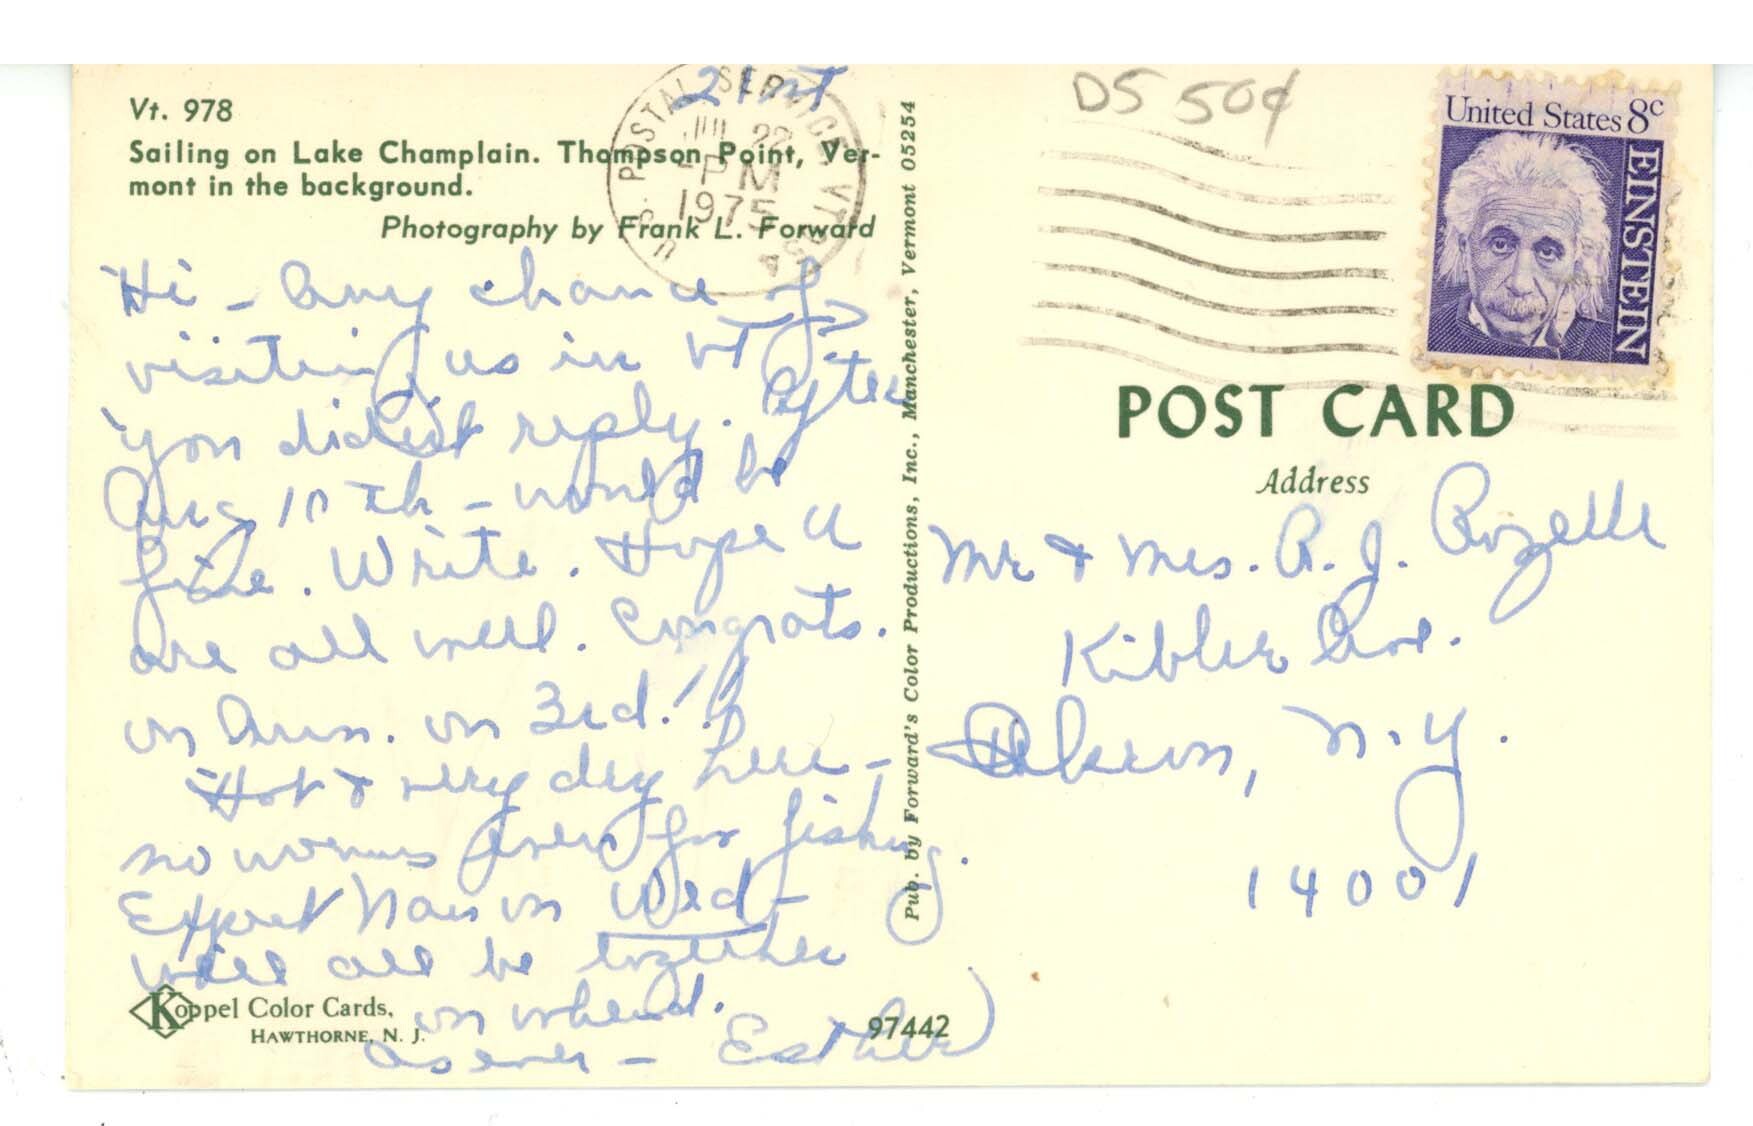 Vt. 978
Sailing on Lake Champlain. Thompson Point, Ver-
mont in the background.
Photography by Frank L. Forward
21st
U.S. POSTAL SERVICE VT
JUL 22
PM
1975
DS 50¢
United States 8c
EINSTEIN
Hi - Any chance of
visiting us in VT
you didn't reply. After
Aug 10th - would be
fine. Write. Hope u
are all well. Congrats.
on Ann. on 3rd!
Hot & very dry here -
no worms even for fishing.
Expect on Wed -
will all be together
on
as ever - Esther
Koppel Color Cards,
HAWTHORNE, N. J.
97442
Pub. by Forward's Color Productions, Inc., Manchester, Vermont 05254
POST CARD
Address
Mr & Mrs. R. J. Rozelle
Kibler Ave.
Akron, N.Y.
14001